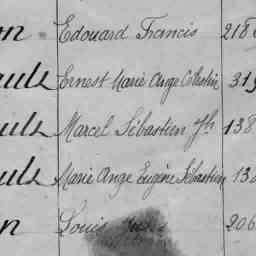 on Edouard Francis 218
aulx Ernest Marie Ange Célestin 319
aulx Marcel Sébastien Jh 138
aulx Marie Ange Eugène Sébastien 13
on Louis 206